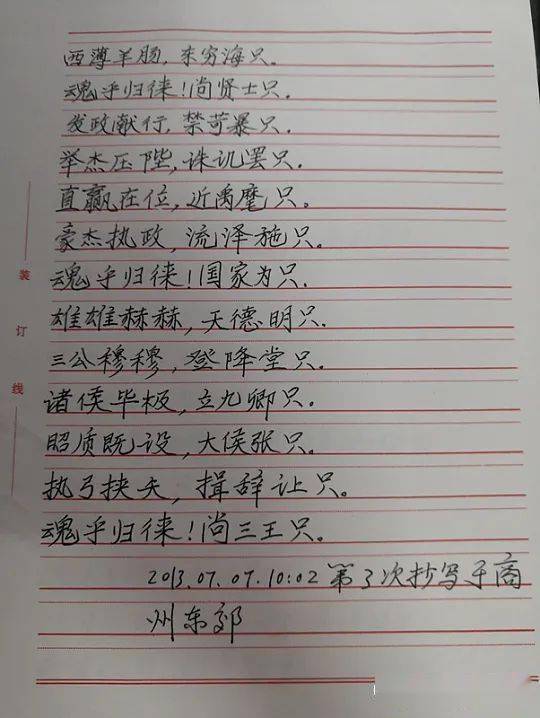 西薄羊肠，东穷海只.
魂乎归徕！尚贤士只.
发政献行，禁苛暴只.
举杰压陛，诛讥罢只.
直赢在位，近禹麾只.
豪杰执政，流泽施只.
魂乎归徕！国家为只.
雄雄赫赫，天德明只.
三公穆穆，登降堂只.
诸侯毕极，立九卿只.
昭质既设，大侯张只.
执弓挟矢，揖辞让只。
魂乎归徕！尚三王只.
2013.07.07.10:02 第3次抄写于商
州东郊
装
订
线